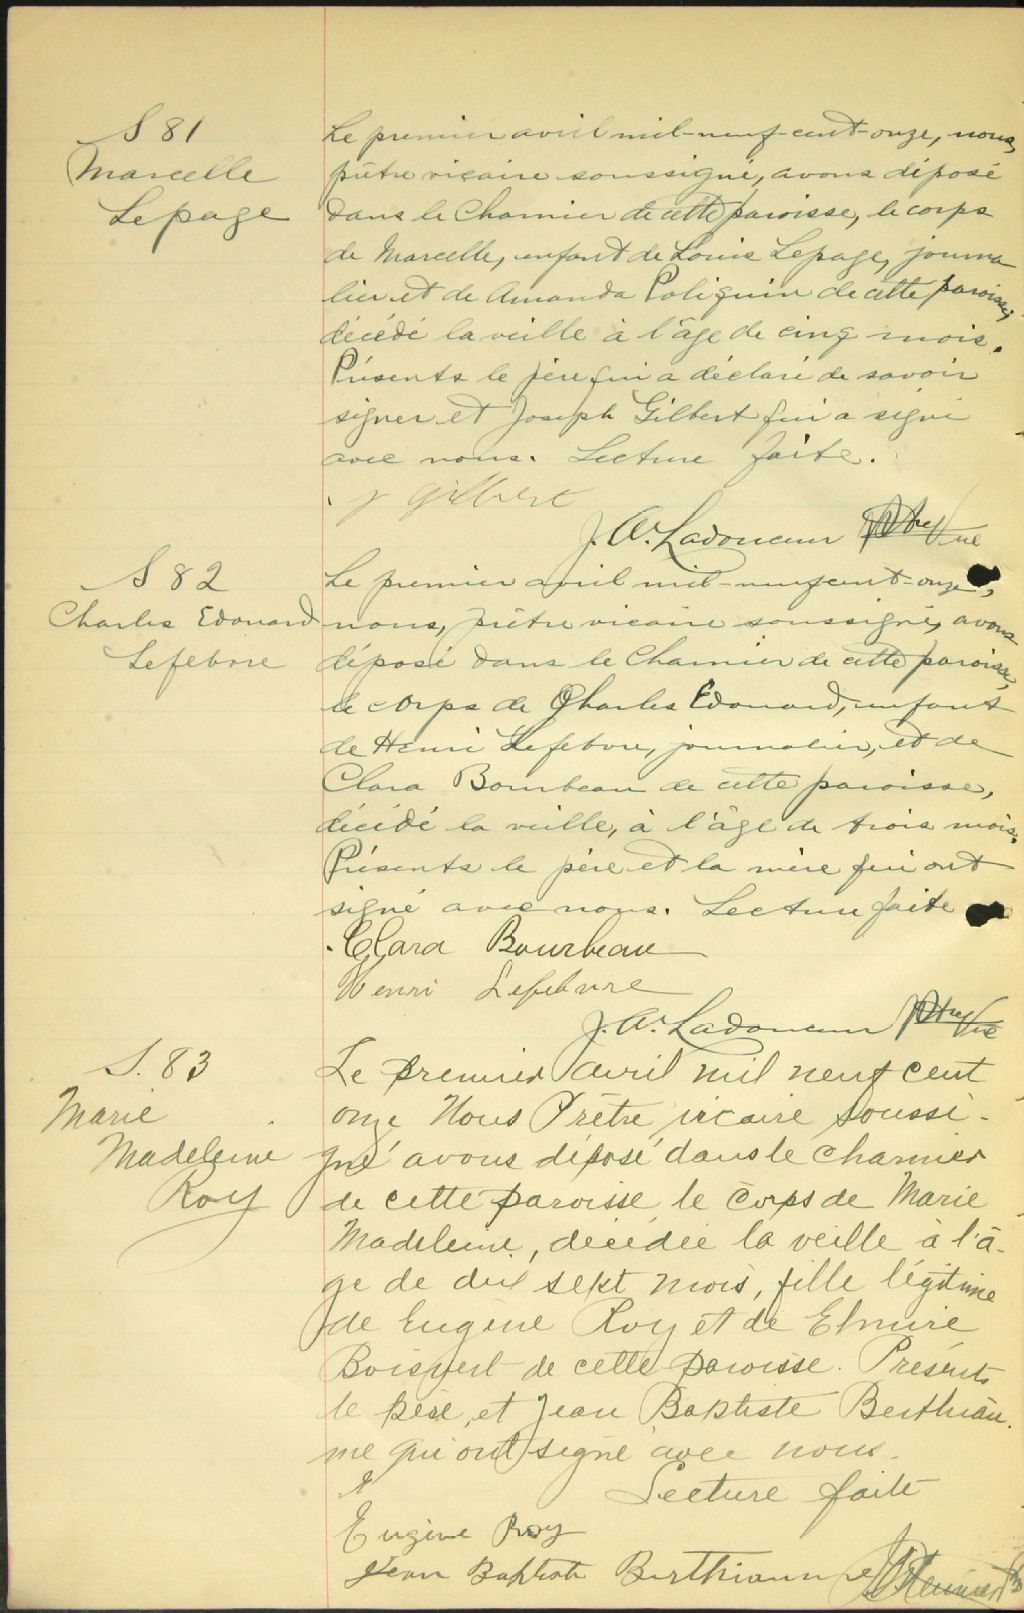 S 81
Marcelle
Lepage
Le premier avril mil-neuf-cent-onze, nous,
prêtre vicaire soussigné, avons déposé
dans le Charnier de cette paroisse, le corps
de Marcelle, enfant de Louis Lepage, journa
lier et de Amanda Poliquin de cette paroisse,
décédé la veille à l'âge de cinq mois.
Présents le père qui a déclaré de savoir
signer et Joseph Gilbert qui a signé
avec nous. Lecture faite.
J Gilbert
J. A. Ladouceur Ptre Vic
S 82
Charles Edouard
Lefebvre
Le premier avril mil-neuf-cent-onze,
nous, prêtre vicaire soussigné, avons
déposé dans le Charnier de cette paroisse,
le corps de Charles Edouard, enfant
de Henri Lefebvre, journalier, et de
Clara Bourbeau de cette paroisse,
décédé la veille, à l'âge de trois mois.
Présents le père et la mère qui ont
signé avec nous. Lecture faite
Clara Bourbeau
Henri Lefebvre
J. A. Ladouceur Ptre Vic
S. 83
Marie
Madeleine
Roy
Le premier avril mil neuf cent
onze Nous Prêtre vicaire soussi-
gné avons déposé dans le charnier
de cette paroisse le corps de Marie
Madeleine, décédée la veille à l'â-
ge de dix sept mois, fille légitime
de Eugène Roy et de Elmire
Boisvert de cette paroisse. Présents
le père, et Jean Baptiste Berthiau-
me qui ont signé avec nous.
Lecture faite
Eugène Roy
Jean Baptiste Berthiaume